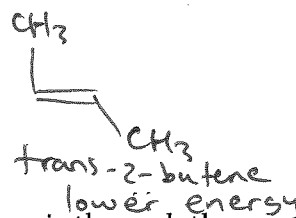 CH3
CH3
trans-2-butene
lower energy